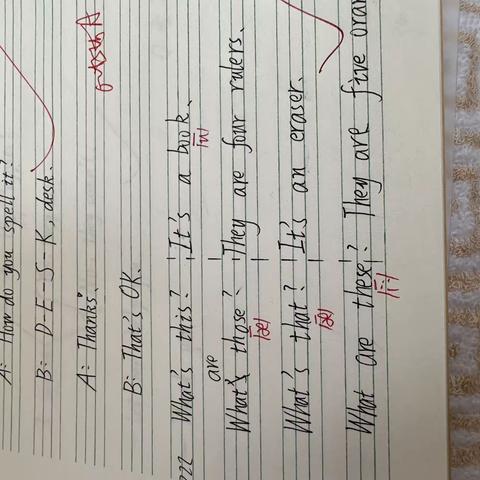 A: How do you spell it?
B: D-E-S-K, desk.
A: Thanks.
B: That's OK.
What's this? It's a book.
[u]
are
What's those? They are four rulers.
What's that? It's an eraser.
What are these? They are five
[i:]